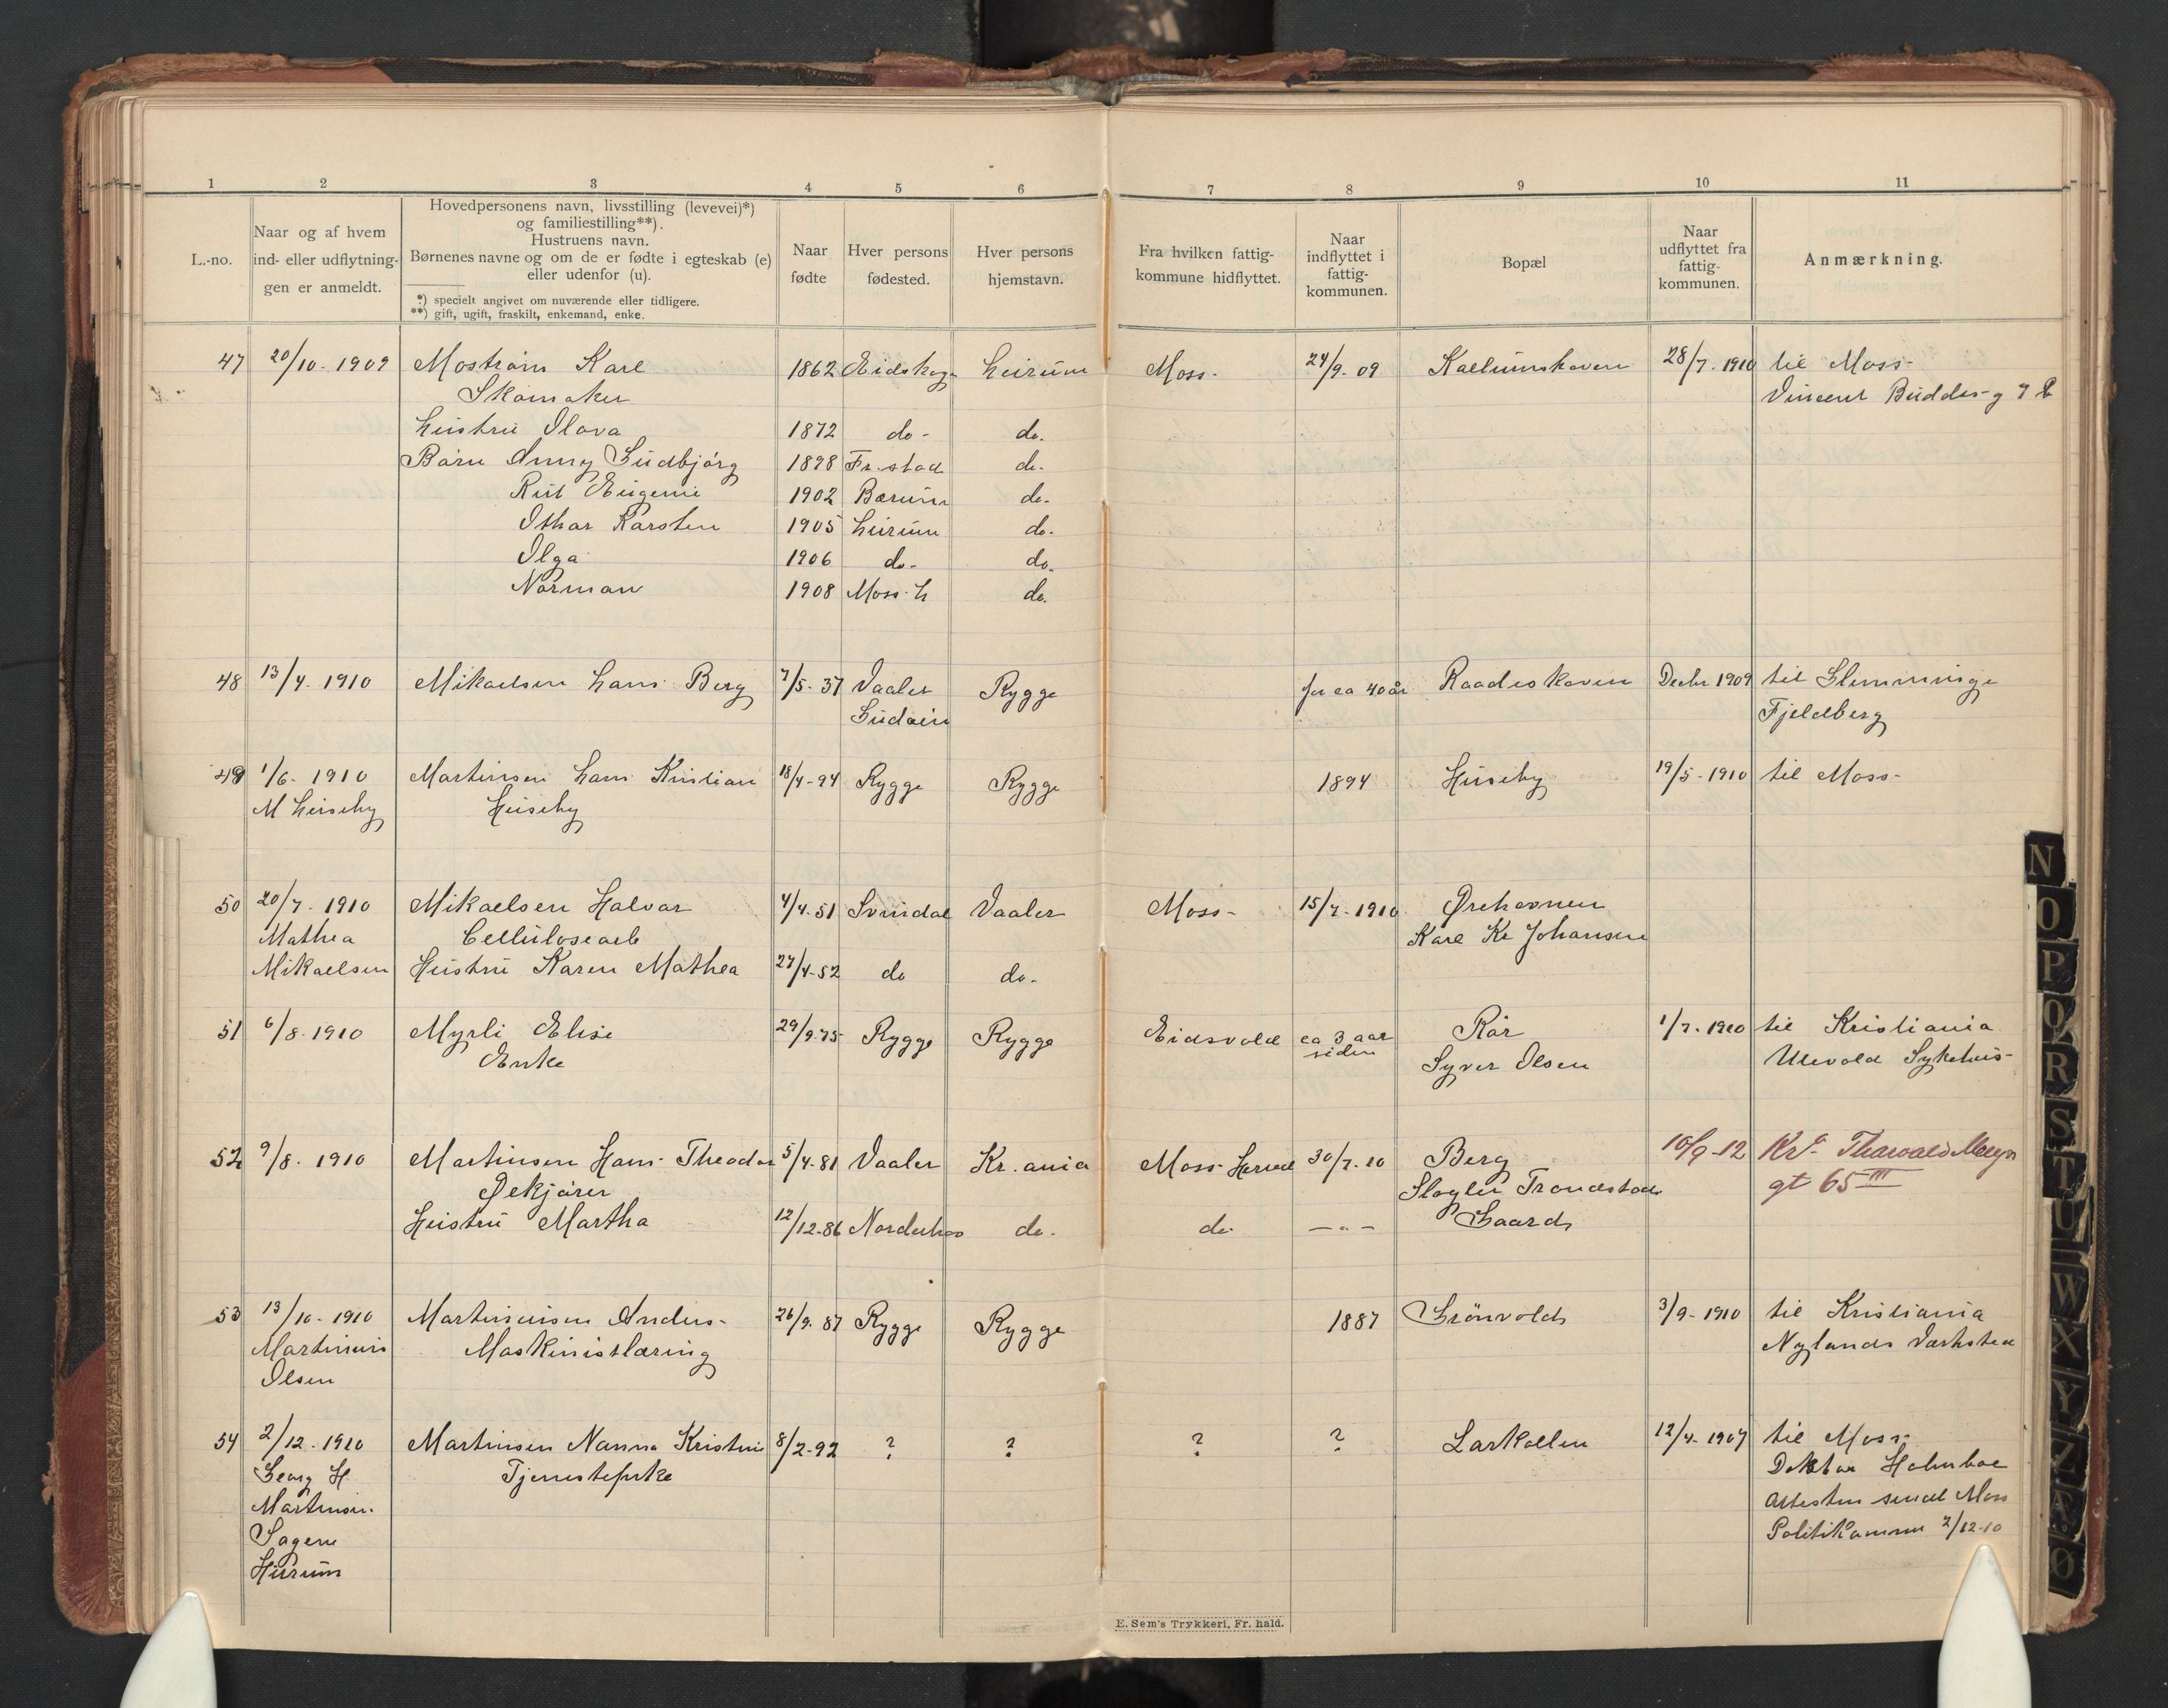 1 2 3 4 5 6 7 8 9 10 11
L.-no.
Naar og af hvem
ind- eller udflytnin-
gen er anmeldt.
Hovedpersonens navn, livsstilling (levevei)*)
og familiestilling**).
Hustruens navn.
Børnenes navne og om de er fødte i egteskab (e)
eller udenfor (u).
*) specielt angivet om nuværende eller tidligere.
**) gift, ugift, fraskilt, enkemand, enke.
Naar
fødte
Hver persons
fødested.
Hver persons
hjemstavn.
Fra hvilken fattig-
kommune hidflyttet.
Naar
indflyttet i
fattig-
kommunen.
Bopæl
Naar
udflyttet fra
fattig-
kommunen.
Anmærkning.
47 20/10-1909 Moström Karl 1862 Eidskog Hurum Moss- 24/9-09 28/7-1910 til Moss-
Skomaker Vincent Buddes g 7 b
Hustru Olava 1872 do- do.
Børn Anny Gudbjørg 1898 Fr.stad do.
Rut Eugenie 1902 Bærum do-
Othar Karsten 1905 Hurum do.
Olga 1906 do- do.
Norman 1908 Moss-h do.
48 13/4-1910 Mikaelsen Hans Berg 7/5-37 Vaaler Rygge for ca 40 år Raadeskoven Decbr 1909 til Glemminge
Fjeldberg
49 1/6-1910 Martinsen Hans Kristian 18/4-94 Rygge Rygge 1894 Huseby 19/5-1910 til Moss-
M Huseby Huseby
50 20/7-1910 Mikaelsen Halvor 4/4-51 Svindal Vaaler Moss- 15/7-1910 Ørehavnen
Mathea Cellulosearb Karl Kr Johansen
Mikaelsen Hustru Karen Mathea 27/4-52 do do-
51 6/8-1910 Myrli Elise 29/9-75 Rygge Rygge Eidsvold ca 3 aar siden Rör 1/7-1910 til Kristiania
Enke Syver Olsen Ulevold Sykehus-
52 9/8-1910 Martinsen Hans Theodor 5/4-81 Vaaler Kr.ania Moss Herred 30/7-10 Berg 10/9-12 Kra Thorvald Meyers
Ølkjörer Trondstad gt 65 III
Hustru Martha 12/12-86 Norderhov do. do - " - Gaard
53 13/10-1910 Martiniusen Anders- 26/9-87 Rygge Rygge 1887 Grönvold 3/9-1910 til Kristiania
Martinius Maskinistlæring Nylands Værksted
Olsen
54 2/12-1910 Martinsen Nanna Kristine 8/2-92 ? ? ? ? Larkollen 12/4-1907 til Moss-
Georg H. Tjenestepike Doktor Holmboe
Martinsen. Attesten sendt Moss
Sagene Politikammer 2/12-10
Hurum
E. Sem's Trykkeri, Fr. hald.
N
O
P
Q
R
S
T
U
W
X
Y
Z
Æ
Ø